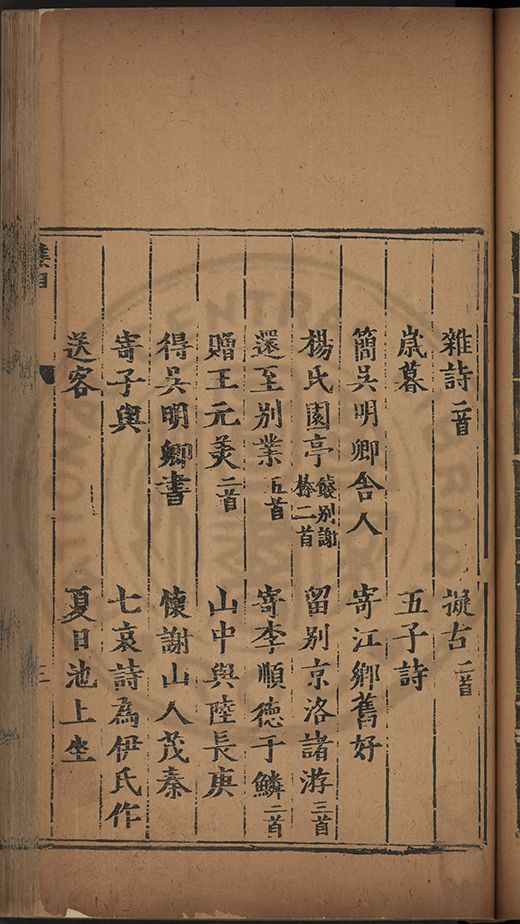 雜詩二首 擬古二首
歲暮 五子詩
簡吳明卿舍人 寄江鄉舊好
楊氏園亭餞別謝榛二首 留別京洛諸游三首
還至別業五首 寄李順德于鱗二首
贈王元美二首 山中與陸長庚
得吳明卿書 懷謝山人茂秦
寄子與 七哀詩為伊氏作
送客 夏日池上坐
集目 三